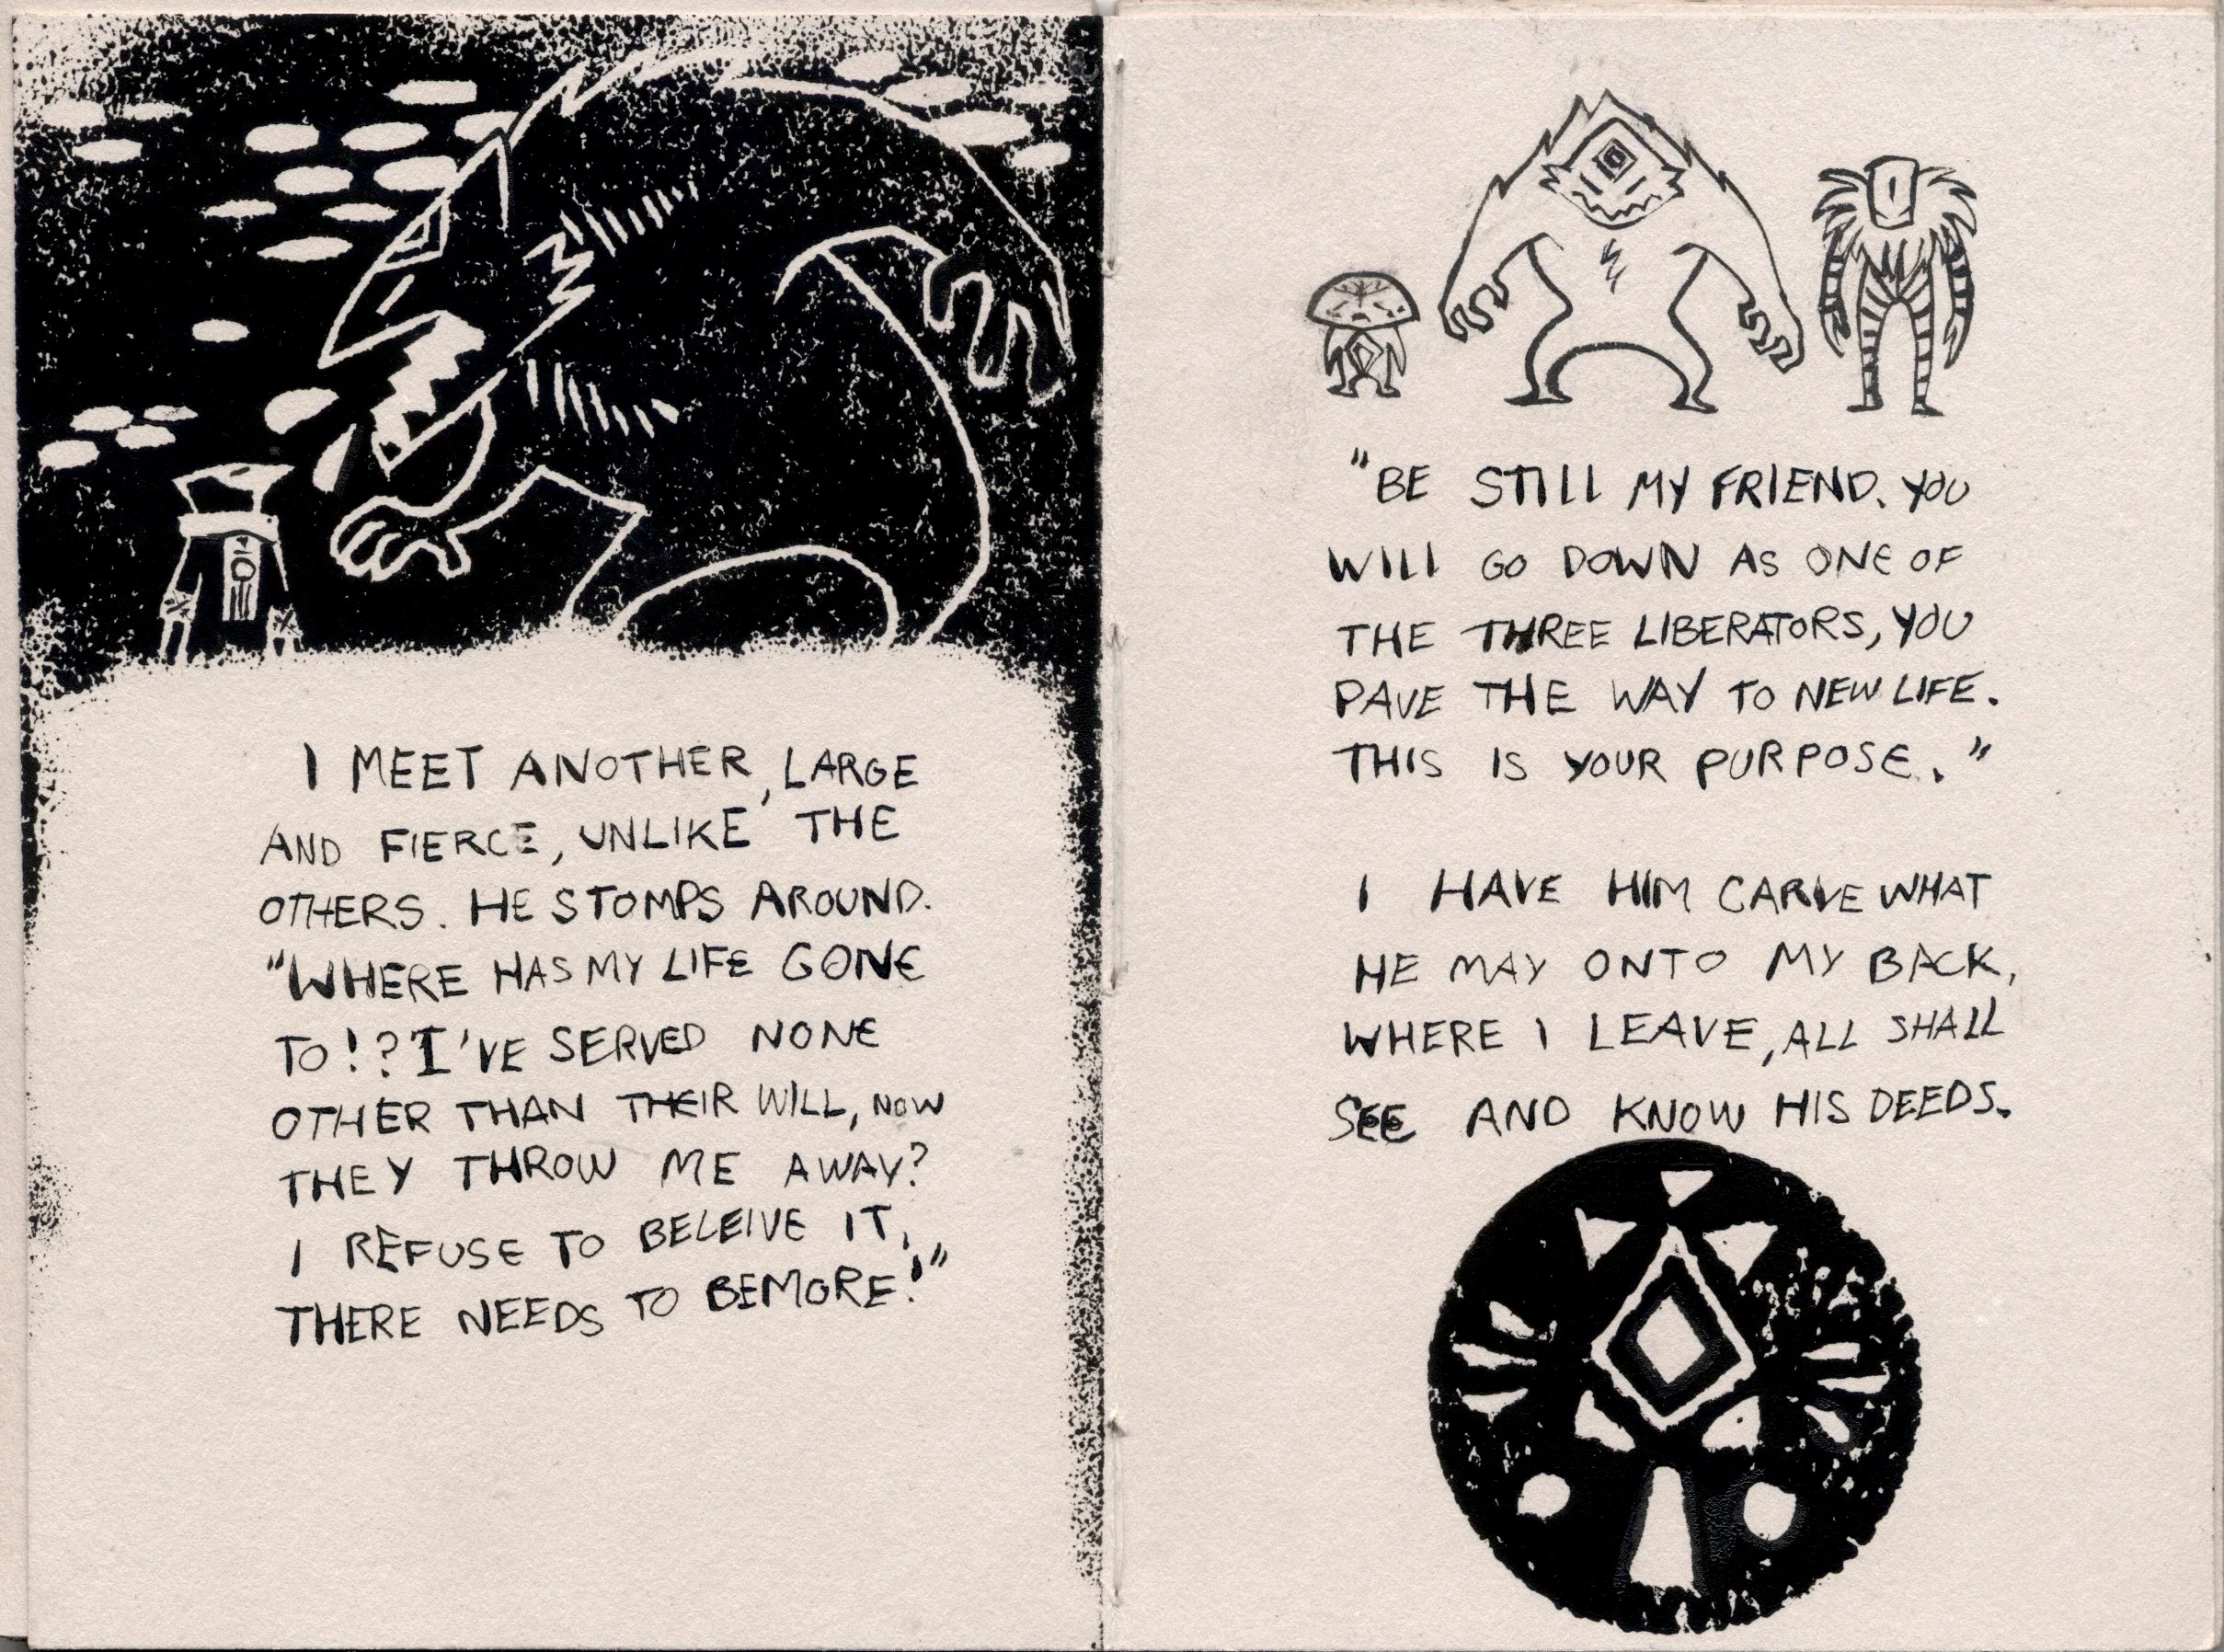 I MEET ANOTHER, LARGE
AND FIERCE, UNLIKE THE
OTHERS. HE STOMPS AROUND.
"WHERE HAS MY LIFE GONE
TO!? I'VE SERVED NONE
OTHER THAN THEIR WILL, NOW
THEY THROW ME AWAY?
I REFUSE TO BELEIVE IT,
THERE NEEDS TO BE MORE!"
"BE STILL MY FRIEND. YOU
WILL GO DOWN AS ONE OF
THE THREE LIBERATORS, YOU
PAVE THE WAY TO NEW LIFE.
THIS IS YOUR PURPOSE."
I HAVE HIM CARVE WHAT
HE MAY ONTO MY BACK,
WHERE I LEAVE, ALL SHALL
SEE AND KNOW HIS DEEDS.